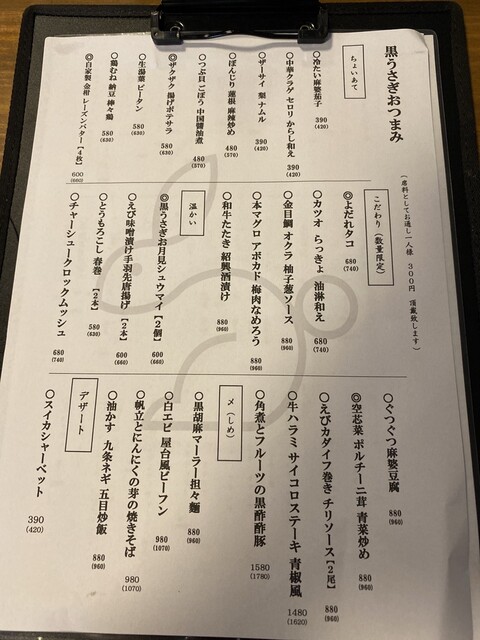 黒うさぎおつまみ
(席料としてお通し一人様 300円 頂戴致します)
ちょいあて
○冷たい麻婆茄子 390 (420)
○中華クラゲ セロリ からし和え 390 (420)
○ザーサイ 梨 ナムル 390 (420)
○ぼんじり 蓮根 麻辣炒め 480 (570)
○つぶ貝 ごぼう 中国醤油煮 480 (570)
◎ザクザク 揚げポテサラ 580 (630)
○生湯葉 ピータン 580 (630)
○鶏むね 納豆 棒々鶏 580 (630)
◎自家製 金柑 レーズンバター【4枚】 600 (660)
こだわり(数量限定)
◎よだれタコ 680 (740)
○カツオ らっきょ 油淋和え 680 (740)
○金目鯛 オクラ 柚子葱ソース 880 (960)
○本マグロ アボカド 梅肉なめろう 880 (960)
○和牛たたき 紹興酒漬け 880 (960)
温かい
◎黒うさぎお月見シュウマイ【2個】 600 (660)
○えび味噌漬け手羽先唐揚げ【2本】 600 (660)
○とうもろこし 春巻【2本】 580 (630)
○チャーシュークロックムッシュ 680 (740)
○ぐつぐつ麻婆豆腐 880 (960)
◎空芯菜 ポルチーニ茸 青菜炒め 880 (960)
○えびカダイフ巻き チリソース【2尾】 880 (960)
○牛ハラミ サイコロステーキ 青椒風 1480 (1620)
○角煮とフルーツの黒酢酢豚 1580 (1780)
〆(しめ)
○黒胡麻マーラー担々麺 880 (960)
○白エビ 屋台風ビーフン 980 (1070)
○帆立とにんにくの芽の焼きそば 980 (1070)
○油かす 九条ネギ 五目炒飯 880 (960)
デザート
○スイカシャーベット 390 (420)